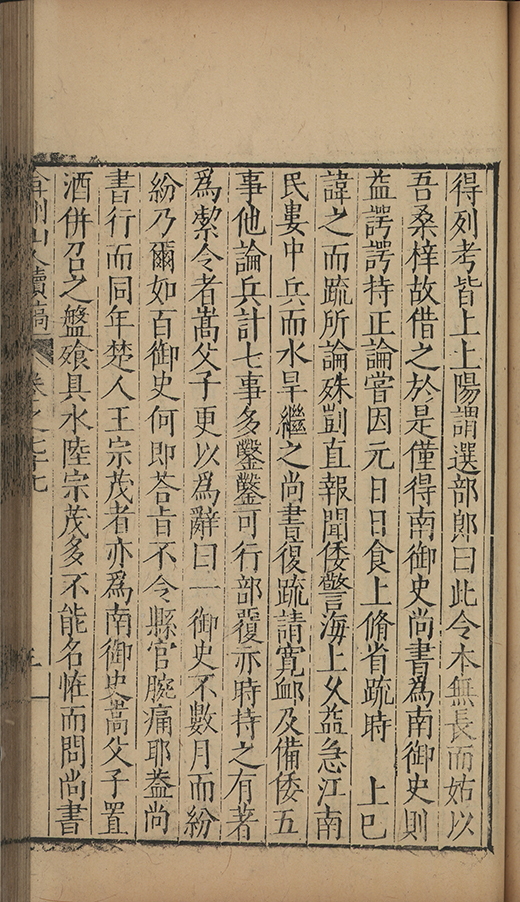 得列考皆上上陽謂選部郎曰此令本無長而姑以
吾桑梓故借之於是僅得南御史尚書爲南御史則
益諤諤持正論嘗因元日日食上脩省疏時　上巳
諱之而疏所論殊剴直報聞倭警海上又益急江南
民婁中兵而水旱繼之尚書復疏請寬卹及備倭五
事他論兵計七事多鑿鑿可行部覆亦時持之有著
爲絜令者嵩父子更以爲辭曰一御史不數月而紛
紛乃爾如百御史何即荅旨不令縣官腕痛耶葢尚
書行而同年楚人王宗茂者亦爲南御史嵩父子置
酒併召之盤飱具水陸宗茂多不能名恠而問尚書
弇州山人續稿　卷之七十九